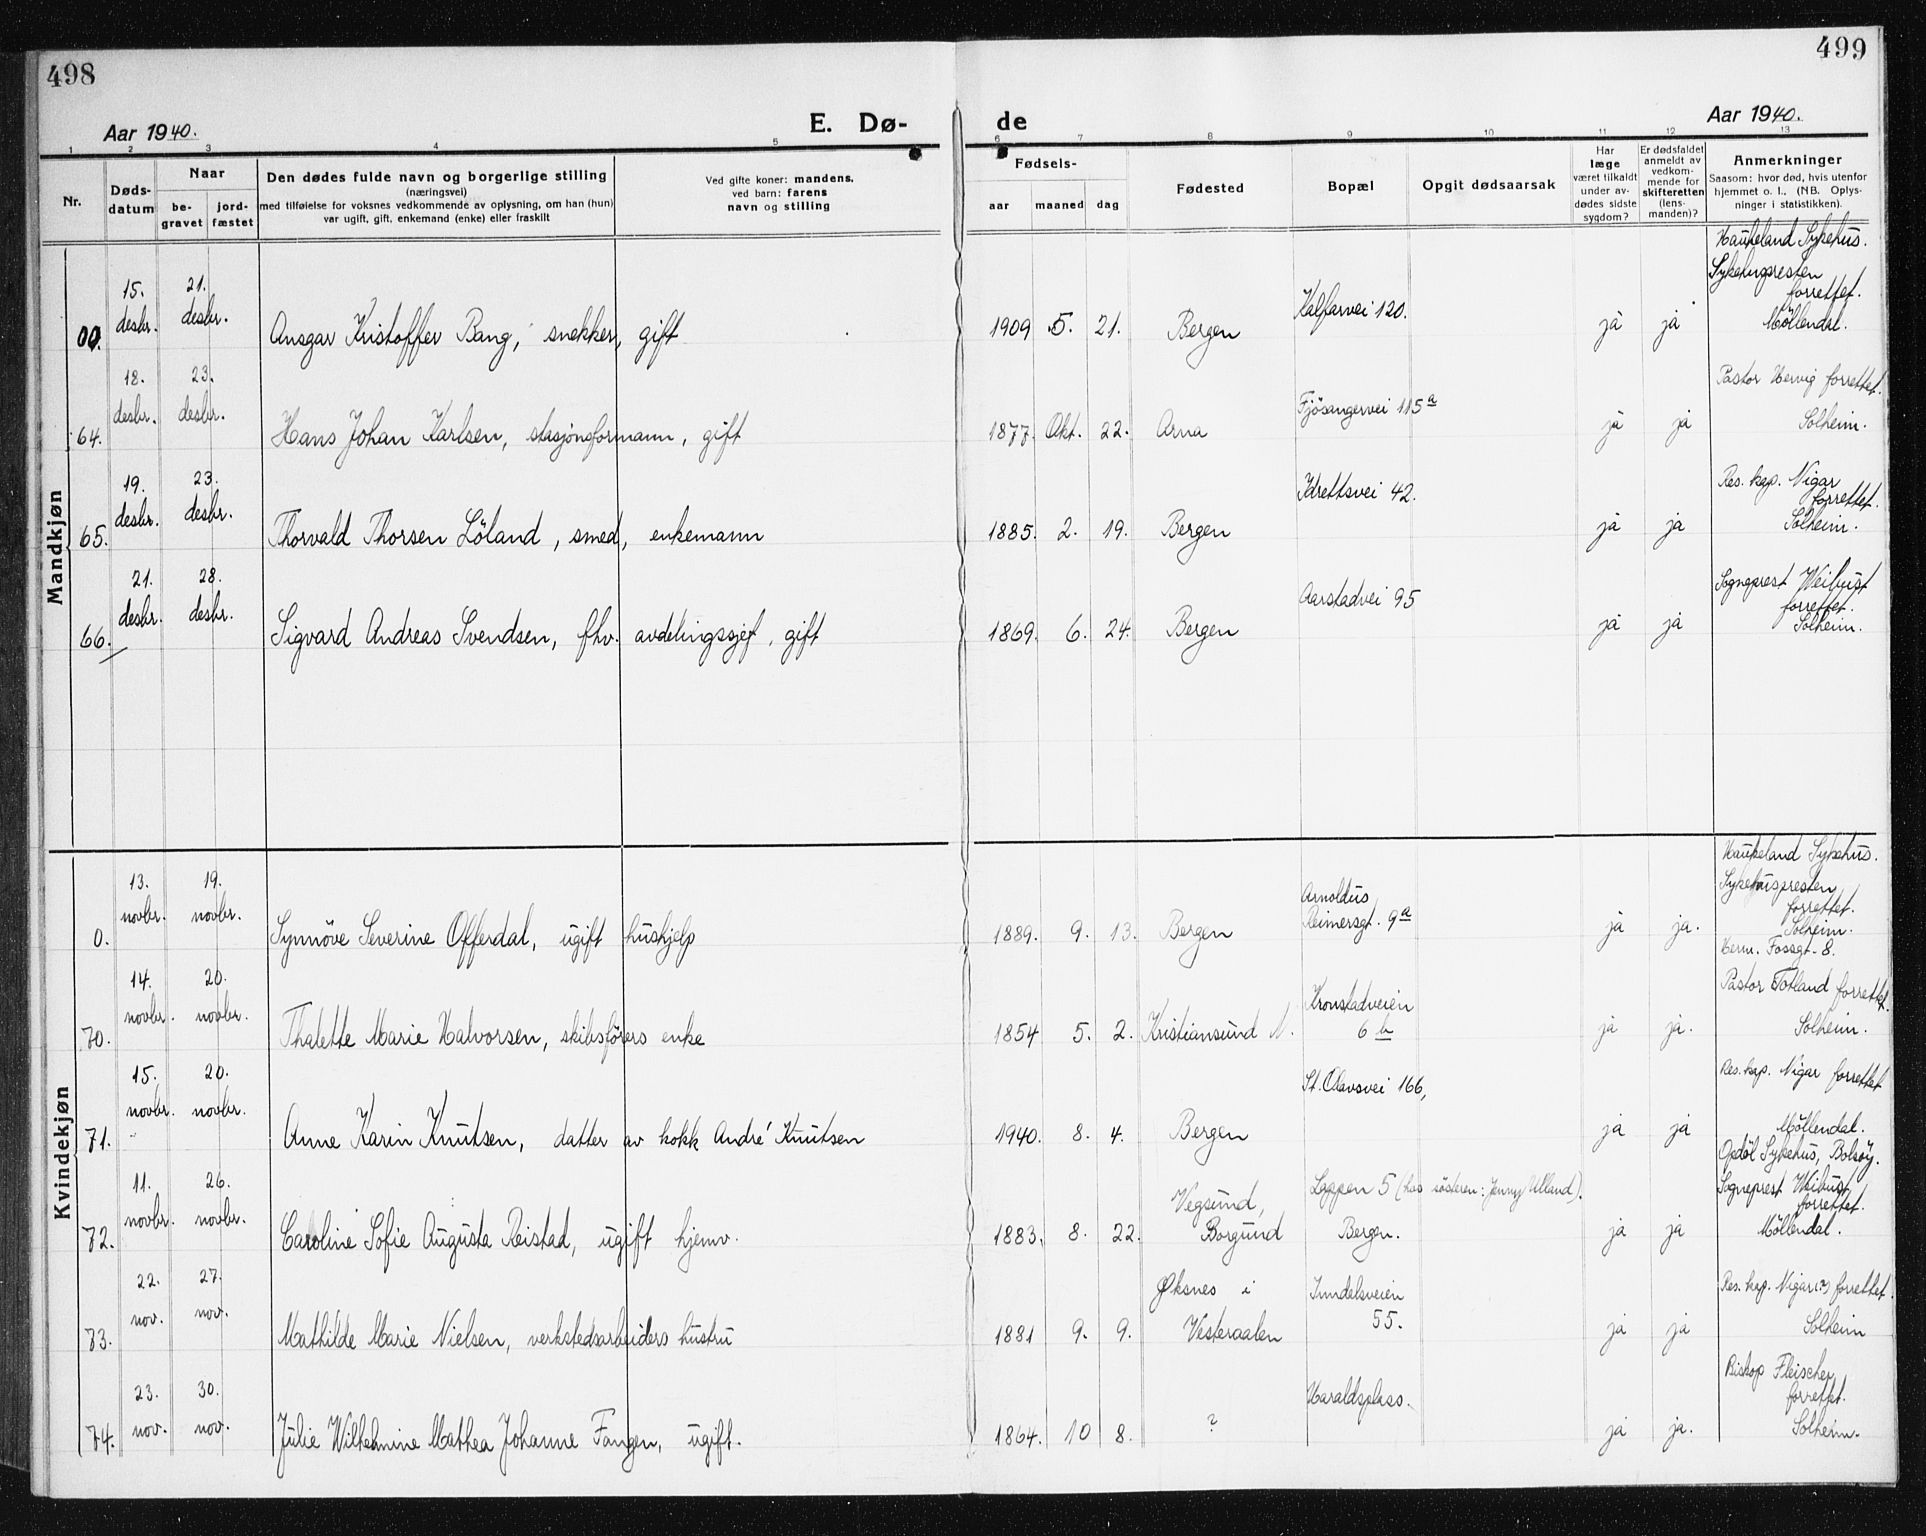 498
499
Aar 1940.
E. Dø-
de
Aar 1940.
1 2 3 4 5 6 7 8 9 10 11 12 13
Nr.
Døds-
datum
Naar
be-
gravet
jord-
fæstet
Den dødes fulde navn og borgerlige stilling
(næringsvei)
med tilføielse for voksnes vedkommende av oplysning, om han (hun)
var ugift, gift, enkemand (enke) eller fraskilt
Ved gifte koner: mandens,
ved barn: farens
navn og stilling
Fødsels-
aar maaned dag
Fødested
Bopæl
Opgit dødsaarsak
Har
læge
været tilkaldt
under av-
dødes sidste
sygdom?
Er dødsfaldet
anmeldt av
vedkom-
mende for
skifteretten
(lens-
manden)?
Anmerkninger
Saasom: hvor død, hvis utenfor
hjemmet o. l., (NB. Oplys-
ninger i statistikken).
Mandkjøn
00. 15. desbr. 21. desbr. Ansgar Kristoffer Bang, snekker, gift 1909 5. 21. Bergen Kalfarvei 120. ja ja Haukeland Sykehus.
Sykehuspresten
forrettet.
Möllendal.
64. 18. desbr. 23. desbr. Hans Johan Karlsen, stasjonsformann, gift 1877. Okt. 22. Arna Fjösangervei 115a ja ja Pastor Hervig forrettet.
Solheim.
65. 19. desbr. 23. desbr. Thorvald Thorsen Löland, smed, enkemann 1885. 2. 19. Bergen Idrettsvei 42. ja ja Res. kap. Nigar
forrettet.
Solheim.
66. 21. desbr. 28. desbr. Sigvard Andreas Svendsen, fhv. avdelingssjef, gift 1869. 6. 24. Bergen Aarstadvei 95 ja ja Sogneprest Weibust
forrettet.
Solheim.
Kvindekjøn
0. 13. novbr. 19. novbr. Synnöve Severine Offerdal, ugift hushjelp 1889. 9. 13. Bergen Arnoldus
Reimersgt. 9a ja ja. Haukeland Sykehus.
Sykehuspresten
forrettet.
Solheim.
Herm. Fossgt. 8.
70. 14. novbr. 20. novbr. Thalette Marie Halvorsen, skibsförers enke 1854 5. 2. Kristiansund N. Kronstadveien
6 b ja ja. Pastor Totland forrettet.
Solheim.
71. 15. novbr. 20. novbr. Anne Karin Knutsen, datter av kokk André Knutsen 1940. 8. 4. Bergen St. Olavsvei 166, ja ja Res. kap. Nigar forrettet
Möllendal.
72. 11. novbr. 26. novbr. Caroline Sofie Augusta Reistad, ugift hjemv. 1883. 8. 22. Vegsund,
Borgund Lappen 5 (hos søsteren: Jenny Ulland).
Bergen. ja ja Opdöl Sykehus, Bolsöy.
Sogneprest Weibust
forrettet.
Möllendal.
73. 22. nov. 27. nov. Mathilde Marie Nielsen, verkstedsarbeiders hustru 1881 9. 9. Øksnes i
Vesteraalen Inndelsveien
55. ja ja Res. kap. Nigar (?) forrettet.
Solheim
74. 23. nov. 30. nov. Julie Wilhelmine Mathea Johanne Fangen, ugift. 1864. 10 8. ? Haraldsplass. ja ja. Biskop Fleischer
forrettet.
Solheim.